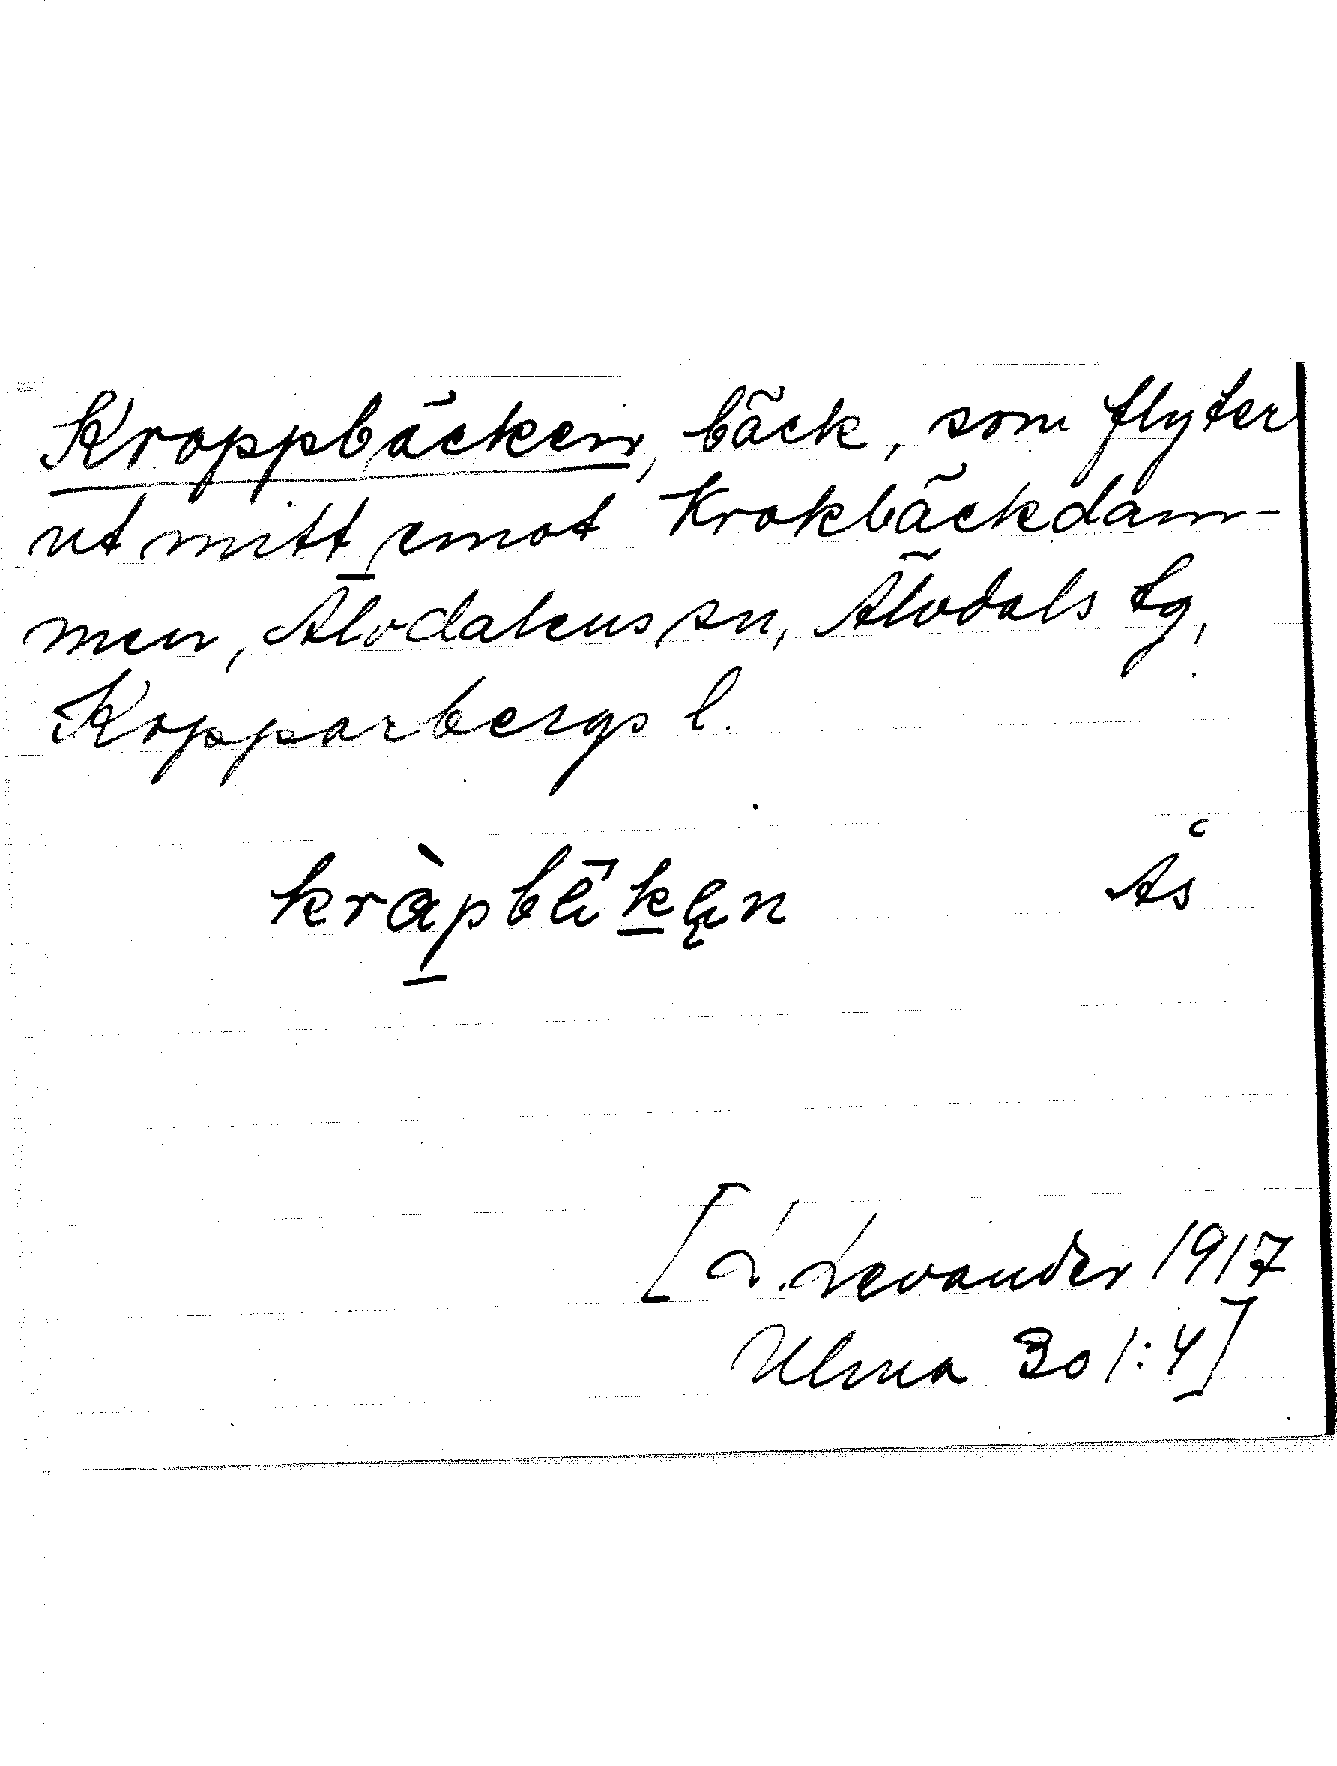 Kroppbäcken, bäck, som flyter
ut mitt emot Krokbäckdam-
men, Älvdalens sn, Älvdals tg,
Kopparbergs l.
Ås
[L. Levander 1917
Ulma 301:4]